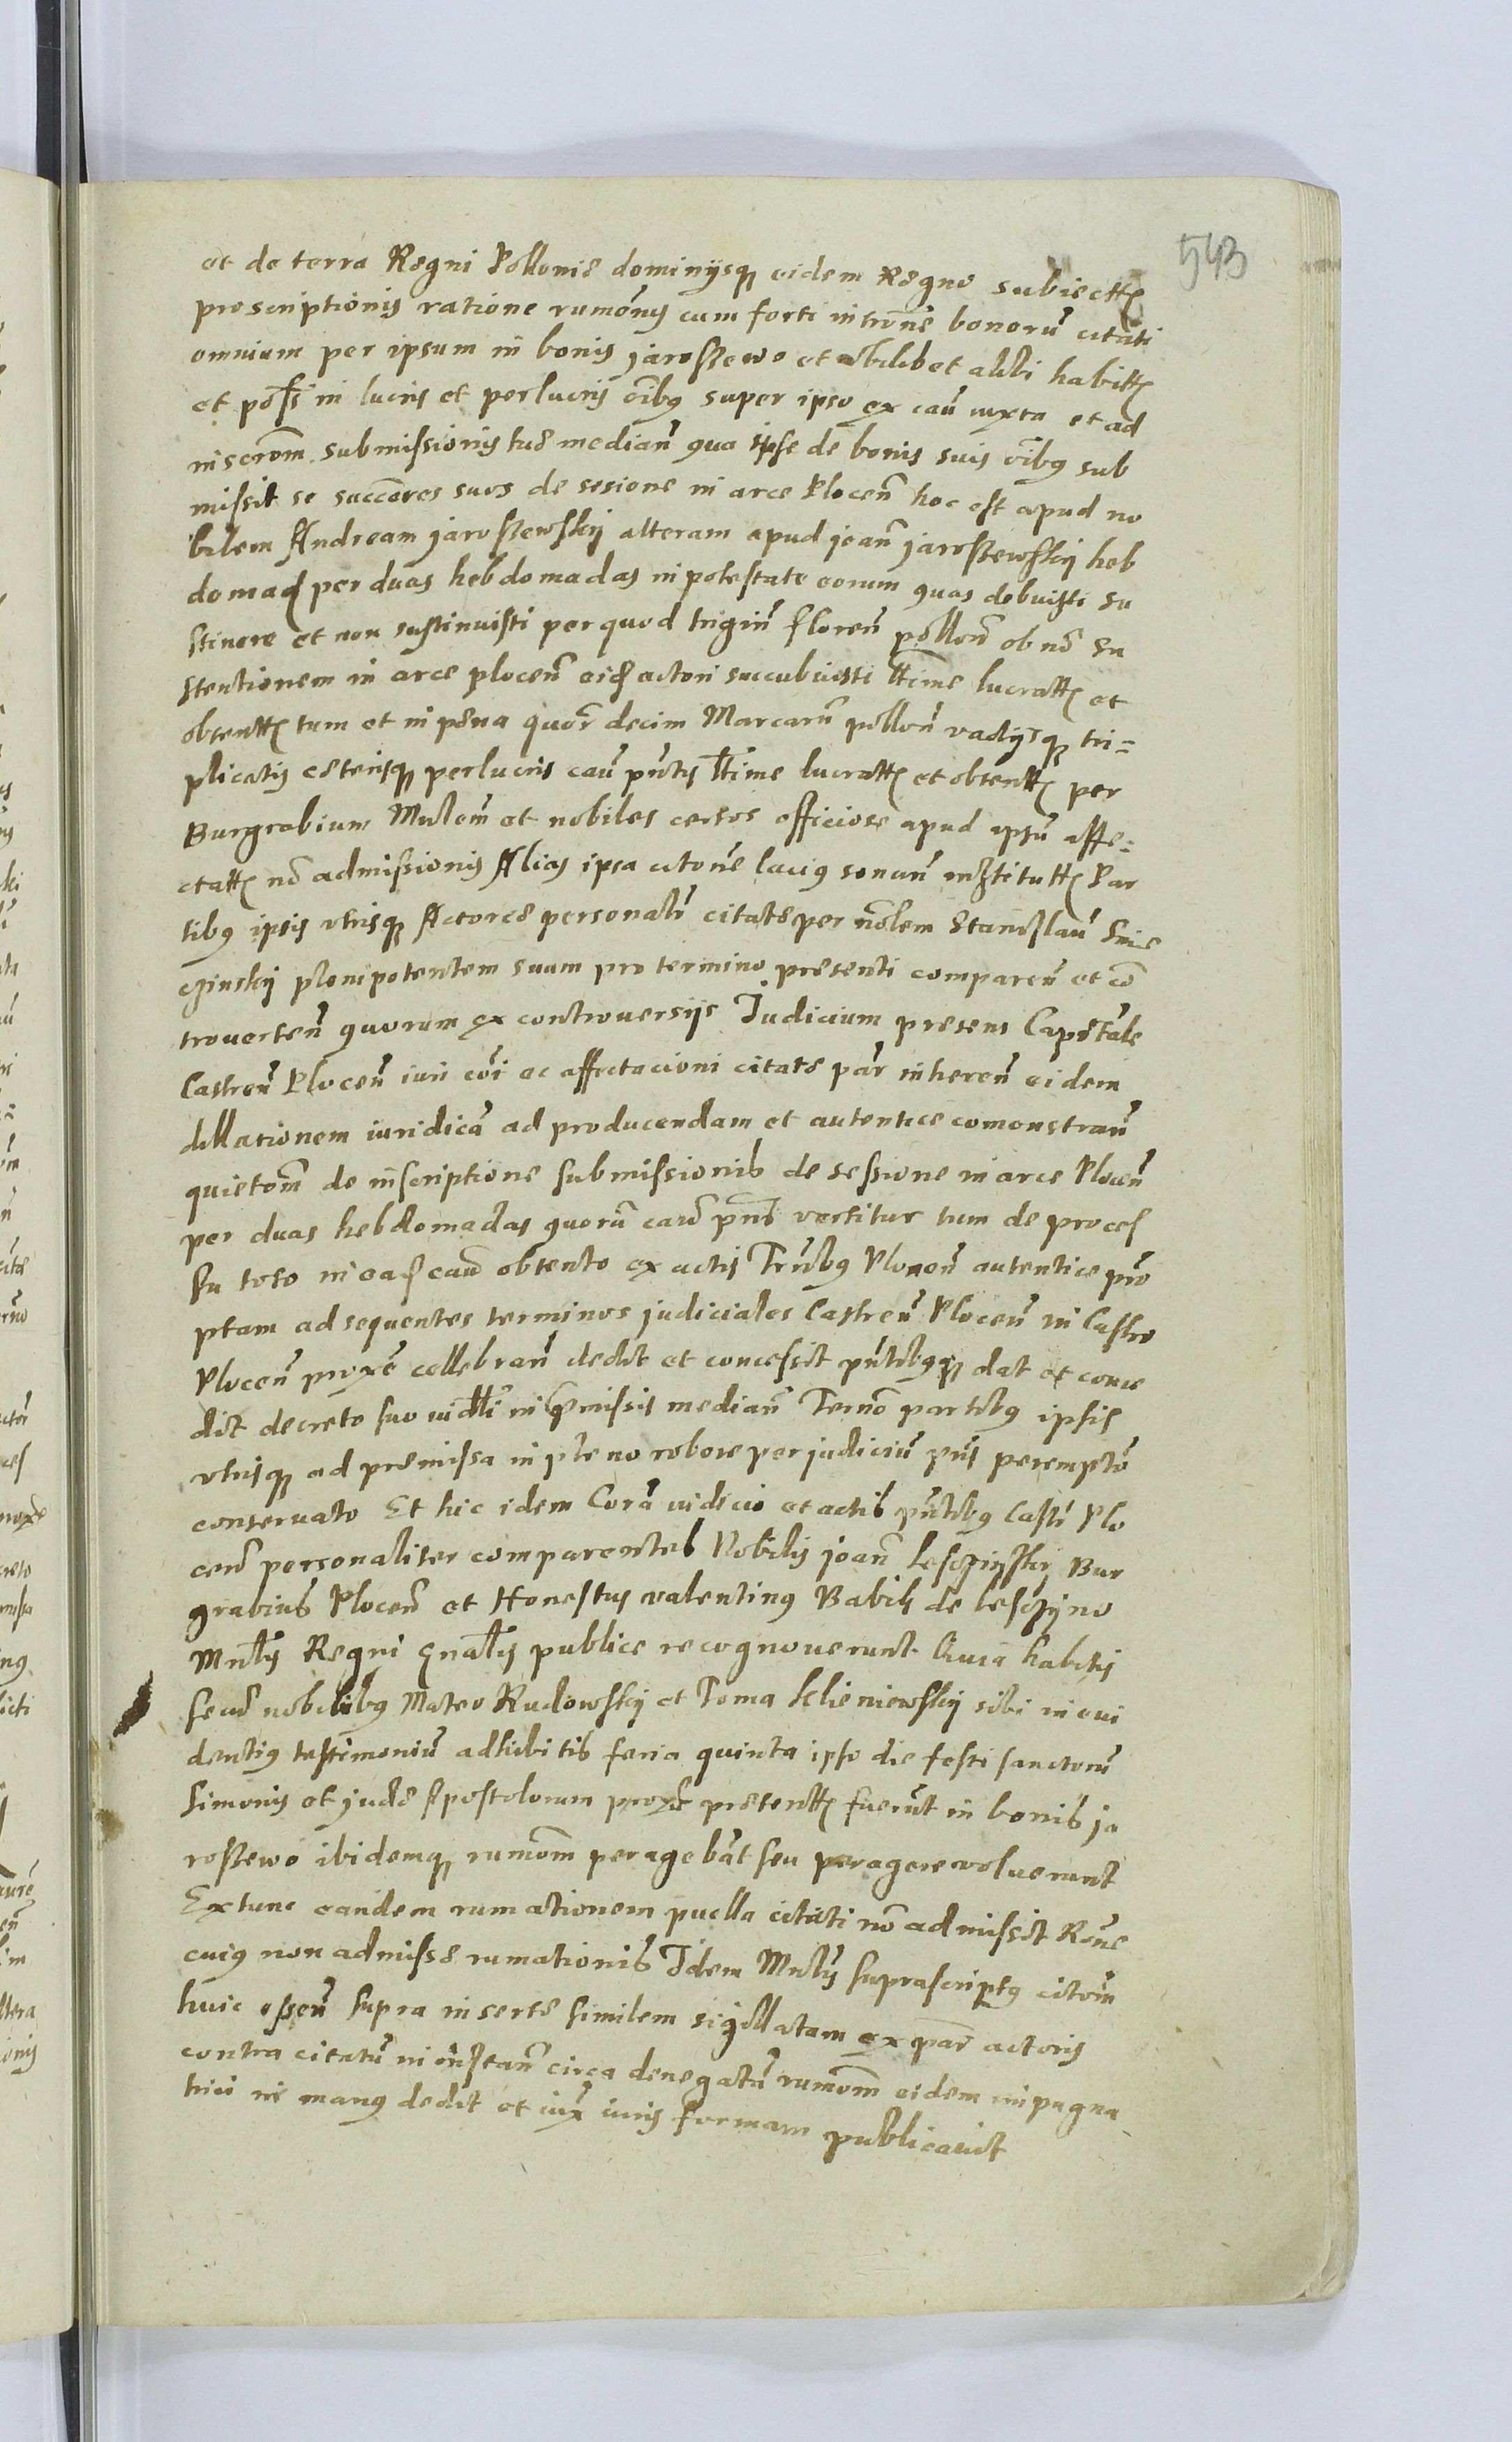 543
et de terra Regni Pollonie dominijsq eidem Regno subiectt
proscriptionis ratione rumōnis cum forti intrōne bonorū citati
omnium per ipsum in bonis Jaroszewo et vbilibet alibi habitt
et poss in lucris et perlucris oībus super ipso ex cau iuxta et ad
inscrōm submissionis tue median qua ipse de bonis suis oībus sub
missit se succores suos de sesione in arce Plocen hoc est apud no
bilem Andream Jaroszewskij alteram apud joan jaroszewskij heb
domad per duas hebdomadas in potestate eorum quas debuisti su
stinere et non sustinuisti per quod trigin floren pollon ob nō su
stentionem in arce plocen eid actori succubuisti lttime lucratt et
obtentt tum et in pena quor decim Marcarū pollon vadijsq tri=
plicatis ceterisq perlucris cau pntis lttime lucratt et obtentt per
Burgrabium Mnlem et nobiles certos officiose apud ipsū affe=
ctatt nō admissionis Alias ipsa citone lacius sonan instítutt Par
tibus ipsis vtrisq Actores personalr citate per nōlem Stanislaū
czinskij plenipotentem suum pro termino presenti comparen et cō
trouerten quorum ex controuersijs Judicium presens Capitale
Castren Plocen iuri cōi ac affectacioni citate par inheren eidem
dillationem iuridicā ad producendam et autentice comonstran
quietōm de inscriptione submissionis de sessione in arce Plocen
per duas hebdomadas quorū caū pns vertitur tum de proces
su toto in ead caū obtento ex actis Trībus Plocen autentice prō
ptam ad sequentes terminos judiciales Castren Plocen in Castro
Plocen proxē cellebran dedit et concessit pntibusq dat et conce
dit decreto suo in premissis median Termō partibus ipsis
vtrisq ad premissa in pleno robore per judiciū pns peremptō
conseruato Et hic idem Corā iudicio et actis pntibus Castr Plo
cen personaliter comparentes Nobilis joan Lesczijnskij Bur
grabius Plocen et Honestus valentinus Babik de lesczijno
Mnlis Regni gnalis publice recognouerunt Quia habitis
secū nobilibus Mateo Rudowskij et Toma Klieniewskij sibi in eui
dentius testimoniū adhibitis feria quinta ipso die festi sanctorū
Simonis et Jude Apostolorum proxe preteritt fuerūt in bonis ja
roszewo ibidemq rumōm peragebāt seu peragere voluerunt
Extunc eandem rumationem puella citati nō admissit Rōne
cuius non admisse rumationis Idem Mnlis suprascriptus citōm
huic essen supra inserte similem sigillatam ex par actoris
contra citatū in instan circa denegatā rumōm eidem impugna
trici in manus dedit et iux iuris formam publicauit